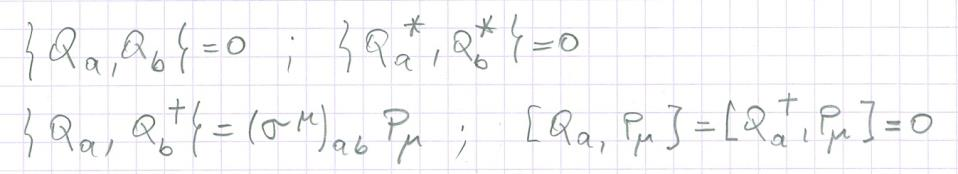 {Q_a, Q_b} = 0 ; {Q_a^*, Q_b^*} = 0
{Q_a, Q_b^†} = (σ^μ)_{ab} P_μ ; [Q_a, P_μ] = [Q_a^†, P_μ] = 0